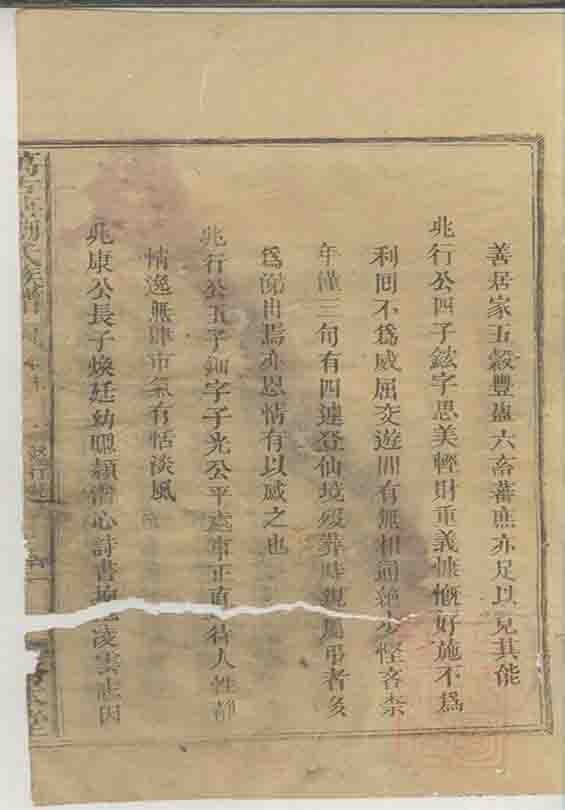 善居家五穀豐盈六畜蕃庶亦足以見其能
兆行公四子鉉字思美輕財重義慷慨好施不爲
利回不爲威屈交遊間有無相通絕少慳吝柰
年僅三旬有四遽登仙境殁葬時親屬弔者多
爲涕出焉亦恩情有以感之也
兆行公五子 字子光公平處事正直待人性靜
情逸無肆市氣有恬淡風
兆康公長子煥廷幼聰穎潛心詩書 凌雲志因
氏族譜